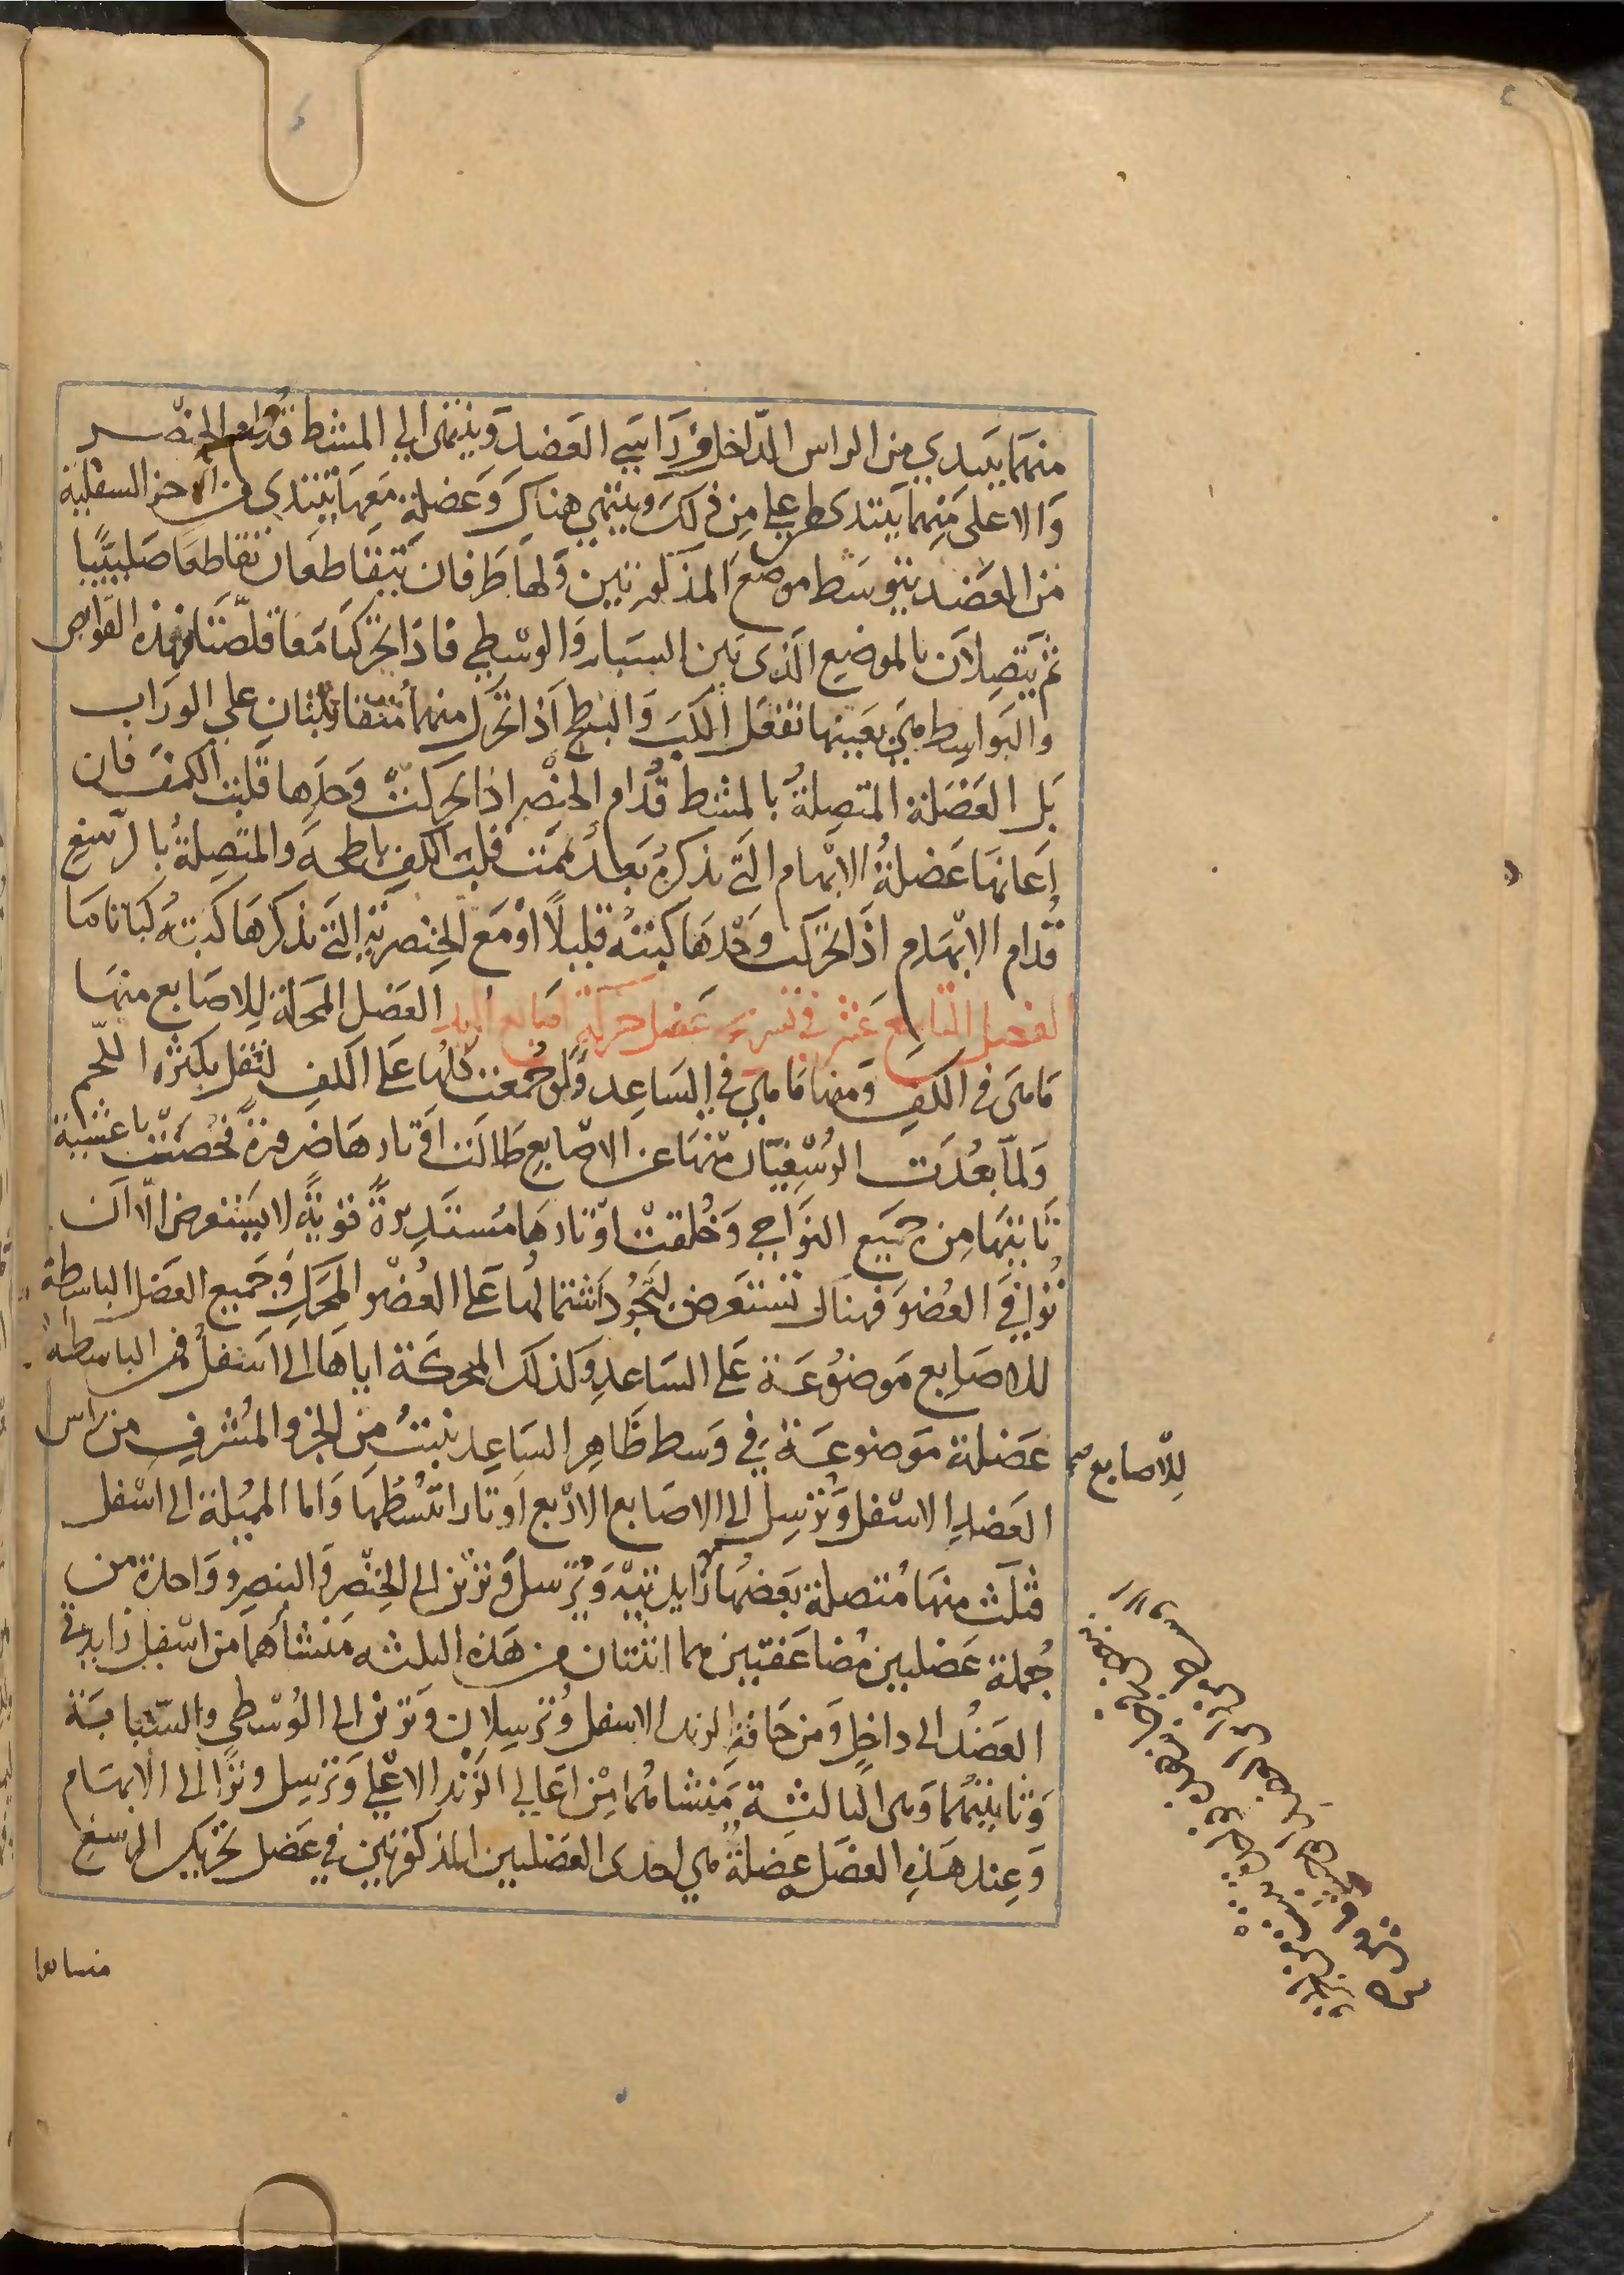 منهما يبتدي من الراس الداخل من راسي العضد وينتهى الى المشط قدام الخنصر
والاعلى منهما يبتدى اعلى من ذلك وينتهي هناك وعضلة معها يبتدى من الاجزا السفلية
من العضد يتوسط موضع المذكورتين ولها طرفان يتقاطعان تقاطعا صليبيا
ثم يتصلان بالموضع الذى بين السبابة والوسطي فاذا تحركتا معا قلصتا فهذه القوابض
والبواسط هي بعينها تفعل الكب والبطح اذا تحرك منهما متقابلتان على الوراب
بل العضلة المتصلة بالمشط قدام الخنصر اذا تحركت وحدها قلبت الكف فان
اعانها عضلة الابهام التي نذكر بعد تممت قلب الكف باطحه والمتصلة بالرسغ
قدام الابهام اذا تحركت وحدها كبته قليلا او مع الخنصرية التي نذكرها كبته كبا تاما
الفصل التاسع عشر في تشريح عضل حركة اصابع اليد العضل المحركة للاصابع منها
ما هى في الكف ومنها ما هي في الساعد ولو جمعت كلها على الكف لثقل بكثرة اللحم
ولما بعدت الرسغيات منها عن الاصابع طالت اوتارها ضرورة فحصنت باغشية
تاتيها من جميع النواحي وخلقت اوتارها مستديرة قوية لا يستعرض الا ان
توافي العضو فهناك تستعرض لتجود اشتمالها على العضو المحرك وجميع العضل الباسطة
للاصابع موضوعة على الساعد وكذلك المحركة اياها الى اسفل فمن الباسطة
عضلة موضوعة في وسط ظاهر الساعد نبتت من الجزو المشرف من راس
للاصابع صح
العضد الاسفل وترسل الى الاصابع الاربع اوتارا تبسطها واما المميلة الى اسفل
فثلث منها متصلة بعضها زايدتيه وترسل وترين الى الخنصر والبنصر وواحدة من
جملة عضلتين مضاعفتين هما اثنتان من هذه الثلثه منشاهما من اسفل زايدتي
العضد الى داخل ومن حافة الزند الاسفل وترسلان وترين الى الوسطي والسبابة
وثانيتهما وهى الثالثة منشاها من اعالي الزند الاعلي وترسل وترا الى الابهام
وعند هذه العضل عضلة هي احدى العضلتين المذكورتين في عضل تحريك الرسغ
منشاها